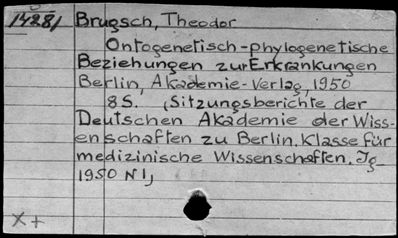 14281 Brugsch, Theodor
Ontogenetisch-phylogenetische
Beziehungen zur Erkrankungen
Berlin, Akademie-Verlag, 1950
8S. (Sitzungsberichte der
Deutschen Akademie der Wiss-
enschaften zu Berlin. Klasse für
medizinische Wissenschaften. Jg
1950 N 1,
X+